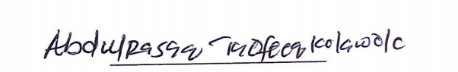 Abdulrasaq Taofeeq Kolawole